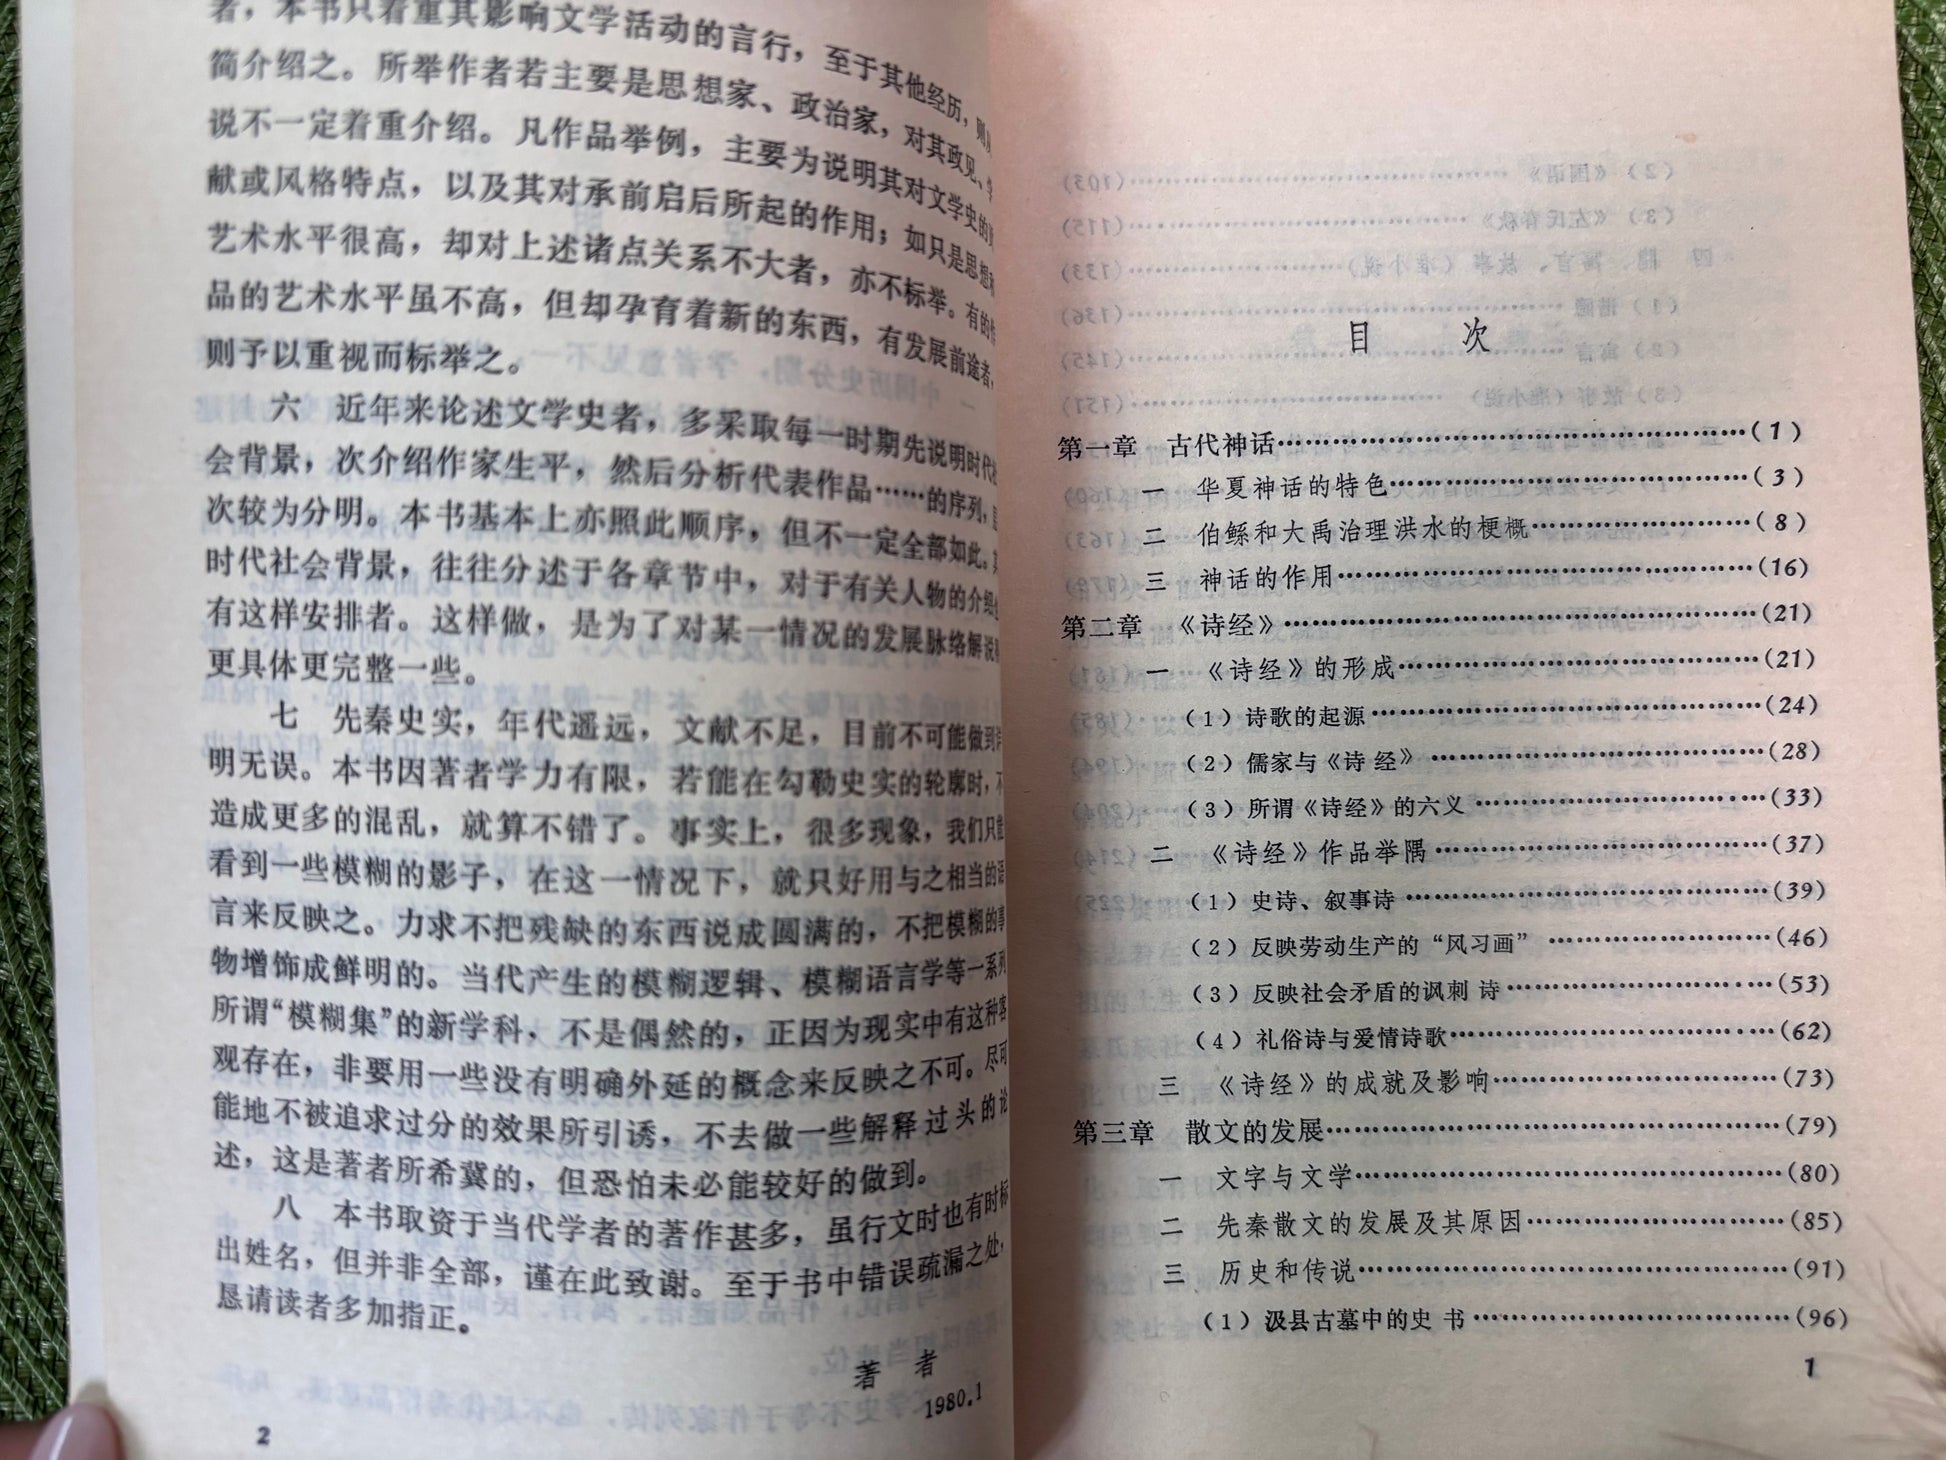 者，本书只着重其影响文学活动的言行，至于其他经历，则
简介绍之。所举作者若主要是思想家、政治家，对其政见、学
说不一定着重介绍。凡作品举例，主要为说明其对文学史的
献或风格特点，以及其对承前启后所起的作用；如只是思想
艺术水平很高，却对上述诸点关系不大者，亦不标举。有的
品的艺术水平虽不高，但却孕育着新的东西，有发展前途者，
则予以重视而标举之。
六　近年来论述文学史者，多采取每一时期先说明时代社
会背景，次介绍作家生平，然后分析代表作品……的序列，
次较为分明。本书基本上亦照此顺序，但不一定全部如此。其
时代社会背景，往往分述于各章节中，对于有关人物的介绍
有这样安排者。这样做，是为了对某一情况的发展脉络解说
更具体更完整一些。
七　先秦史实，年代遥远，文献不足，目前不可能做到详
明无误。本书因著者学力有限，若能在勾勒史实的轮廓时，不
造成更多的混乱，就算不错了。事实上，很多现象，我们只能
看到一些模糊的影子，在这一情况下，就只好用与之相当的语
言来反映之。力求不把残缺的东西说成圆满的，不把模糊的事
物增饰成鲜明的。当代产生的模糊逻辑、模糊语言学等一系列
所谓“模糊集”的新学科，不是偶然的，正因为现实中有这种客
观存在，非要用一些没有明确外延的概念来反映之不可。尽可
能地不被追求过分的效果所引诱，不去做一些解释过头的论
述，这是著者所希冀的，但恐怕未必能较好的做到。
八　本书取资于当代学者的著作甚多，虽行文时也有时标
出姓名，但并非全部，谨在此致谢。至于书中错误疏漏之处，
恳请读者多加指正。
著　者
1980.1
2
目　次
第一章　古代神话……………………………………(1)
一　华夏神话的特色……………………………(3)
二　伯鲧和大禹治理洪水的梗概………………(8)
三　神话的作用…………………………………(16)
第二章　《诗经》……………………………………(21)
一　《诗经》的形成……………………………(21)
（1）诗歌的起源………………………………(24)
（2）儒家与《诗经》…………………………(28)
（3）所谓《诗经》的六义……………………(33)
二　《诗经》作品举隅…………………………(37)
（1）史诗、叙事诗……………………………(39)
（2）反映劳动生产的“风习画”……………(46)
（3）反映社会矛盾的讽刺诗…………………(53)
（4）礼俗诗与爱情诗歌………………………(62)
三　《诗经》的成就及影响……………………(73)
第三章　散文的发展…………………………………(79)
一　文字与文学…………………………………(80)
二　先秦散文的发展及其原因…………………(85)
三　历史和传说…………………………………(91)
（1）汲县古墓中的史书………………………(96)
1